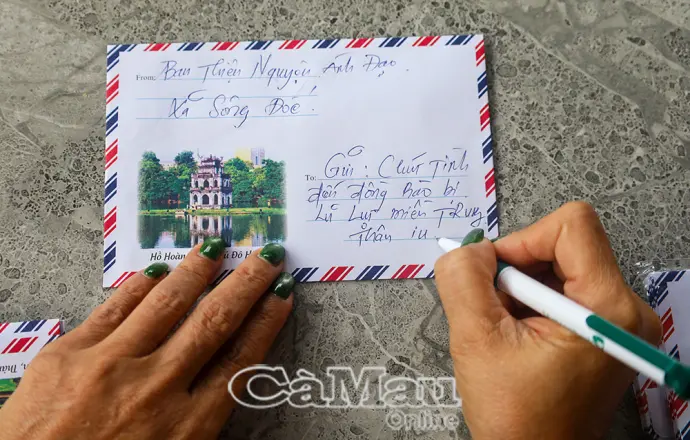 From: Ban Thiện Nguyện Ánh Đạo.
Xã Sông Đốc.
To: Gửi: Chút Tình
đến đồng bào bị
Lũ Lụt miền Trung
Thân iu
Hồ Hoàn
CàMau
Online